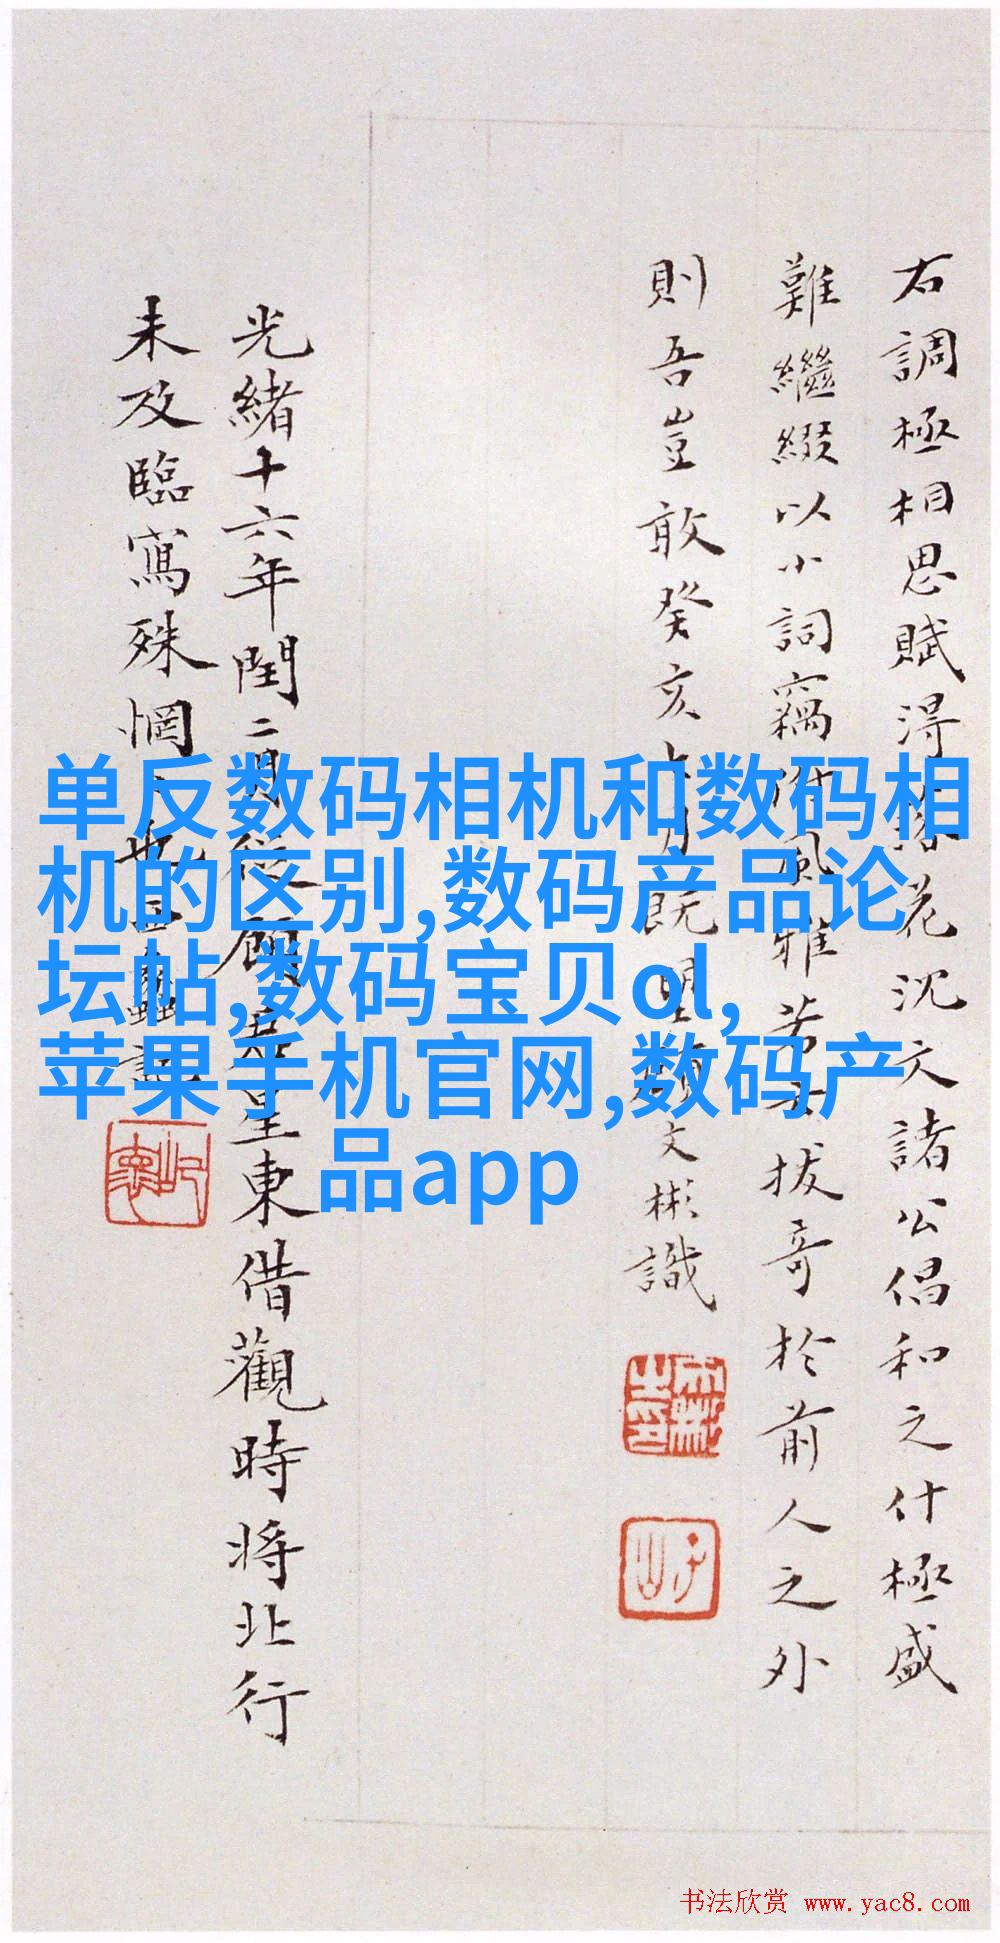 右調極相思賦得落花沈文諸公倡和之什極盛
難繼綴以小詞竊附風雅若云拔奇於前人之外
則吾豈敢癸亥七月既望顧文彬識
光緒十六年閏二月從顧君星東借觀時將北行
未及臨寫殊惘
單反数码相机和数码相
机的区别,数码产品论
坛帖,数码宝贝ol,
苹果手机官网,数码产
品app
书法欣赏 www.yac8.com